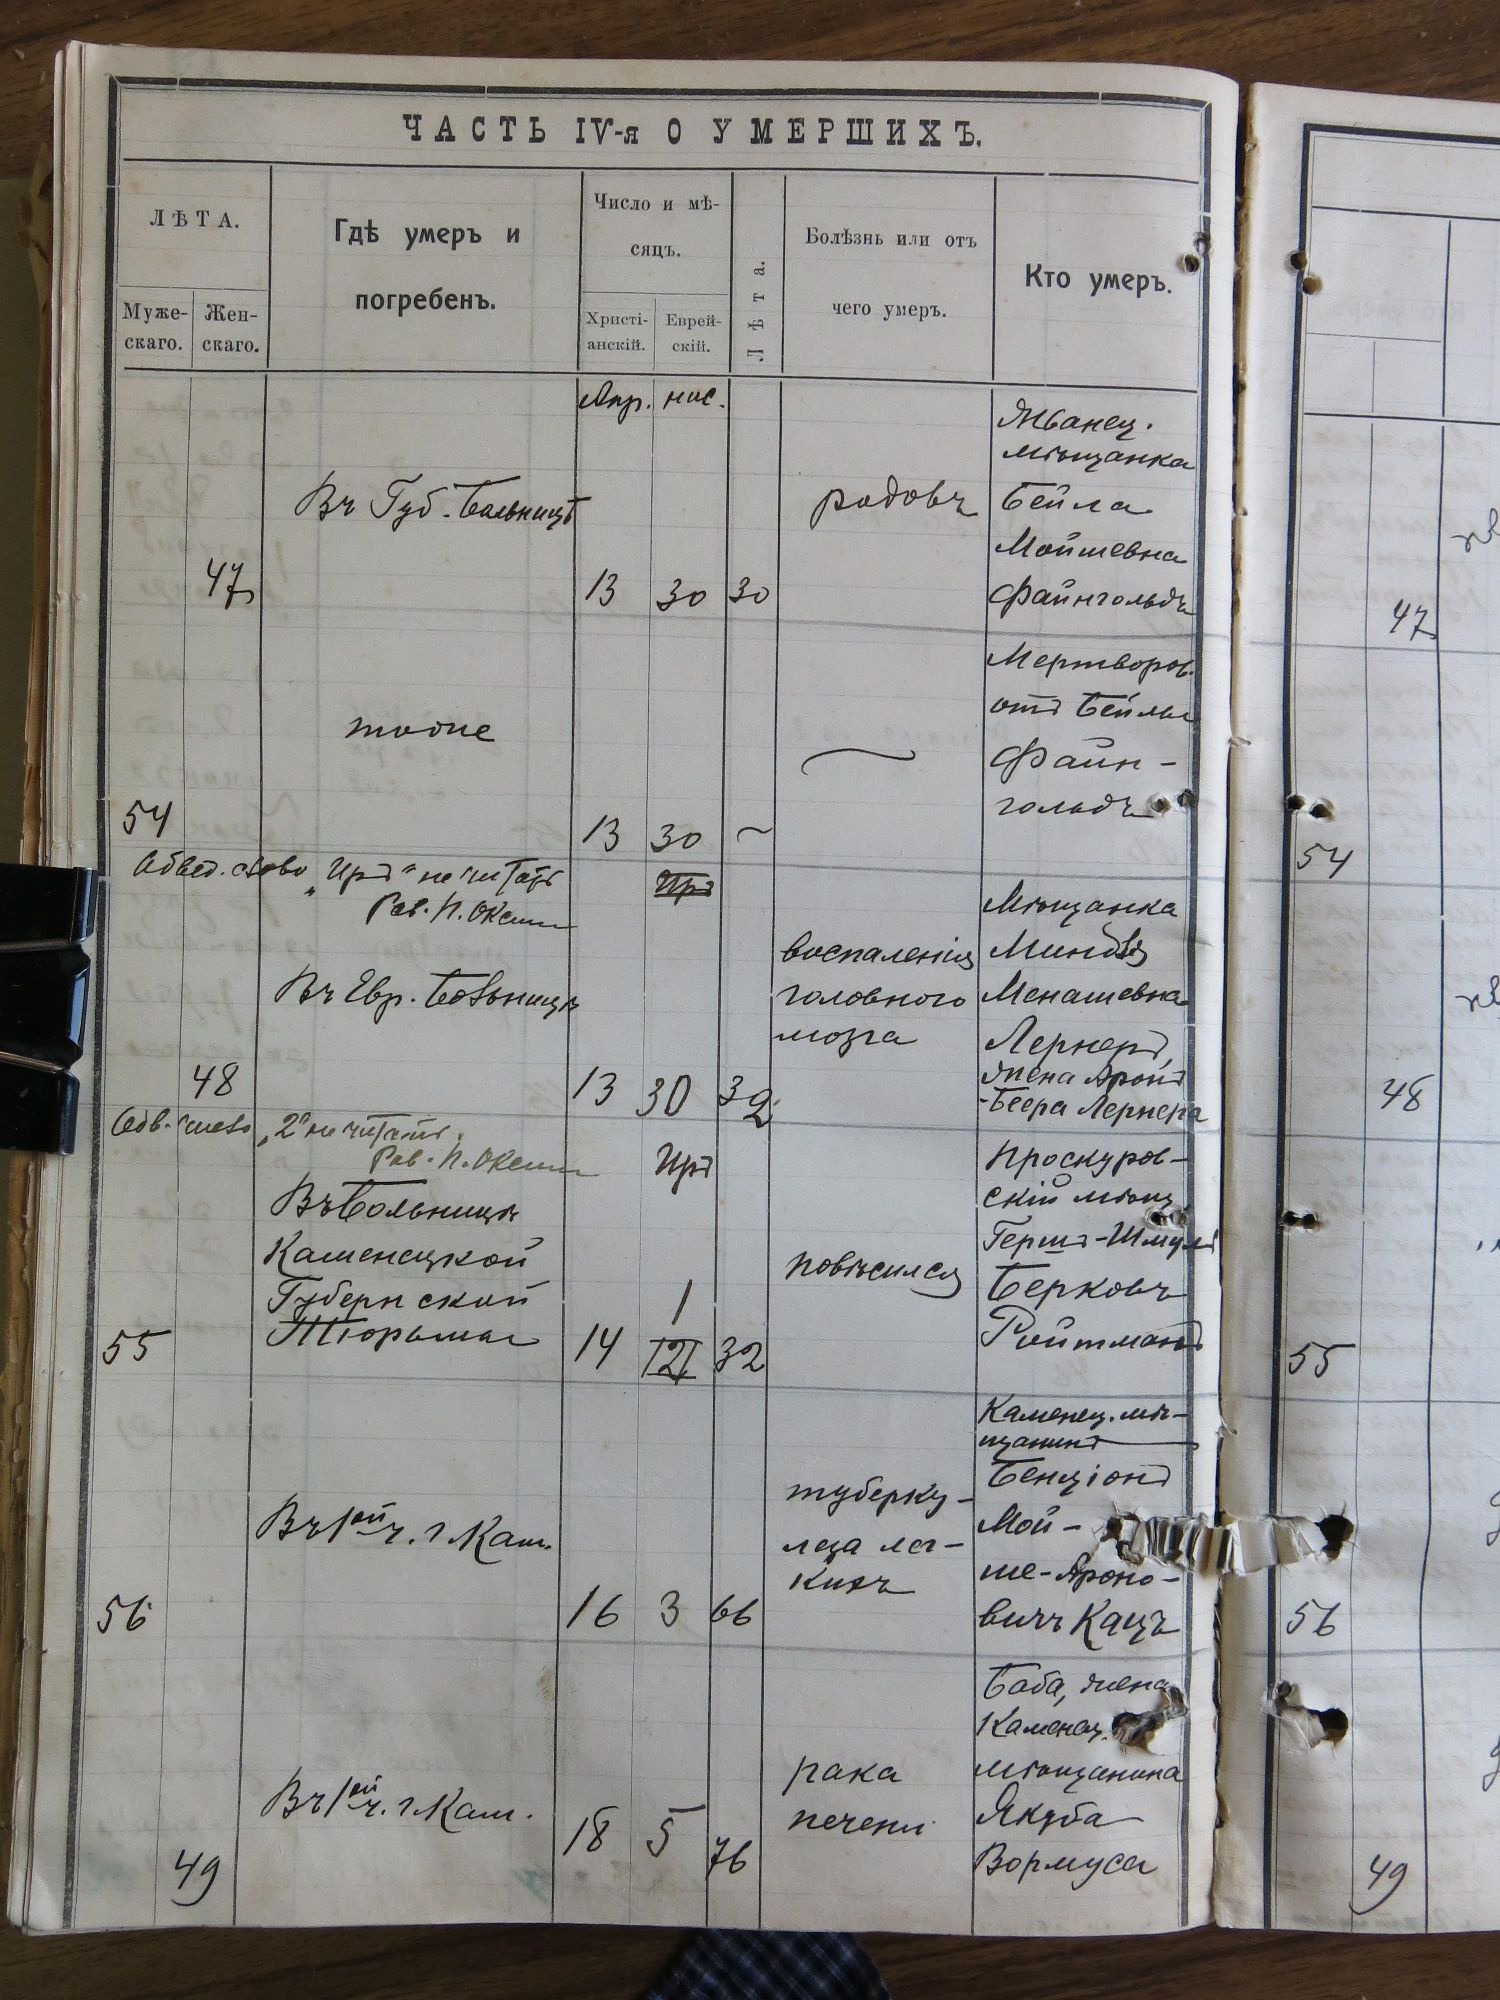 ЧАСТЬ IV-я О УМЕРШИХЪ.
ЛѢТА.
Муже-
скаго.
Жен-
скаго.
Гдѣ умеръ и
погребенъ.
Число и мѣ-
сяцъ.
Христі-
анскій.
Еврей-
скій.
Лѣта.
Болѣзнь или отъ
чего умеръ.
Кто умеръ.
Апр. нис.
47
Въ Губ. Больницѣ
13 30 30
родовъ
Жванец.
мѣщанка
Бейла
Мойшевна
Файнгольдъ
54
тоже
13 30 ~
Мертворов.
отъ Бейлы
Файн-
гольдъ
Обвед. слово „Иръ“ не читать
Рав. П. Оксман
Иръ
48
Въ Евр. Больницѣ
13 30 32
воспаленія
головного
мозга
Мѣщанка
Менашевна
Лернеръ,
жена Аронъ
-Беера Лернера
слово „2“ не читать.
Рав. П. Оксман
Иръ
55
Въ Больницѣ
Каменецкой
Губернской
Тюрьмы
14 1 32
повѣсился
Проскуров-
скій мѣщ.
Гершъ-Шмуль
Берковъ
Ройтманъ
56
Въ 1ой ч. г. Кам.
16 3 66
туберку-
леза лег-
кихъ
Каменец. мѣ-
щанинъ
Бенціонъ
Мой-
ше-Ароно-
вичъ Кацъ
49
Въ 1ой ч. г. Кам.
18 5 76
рака
печени
Баба, жена
Каменец.
мѣщанина
Якуба
Вормуса
47
54
48
55
56
49